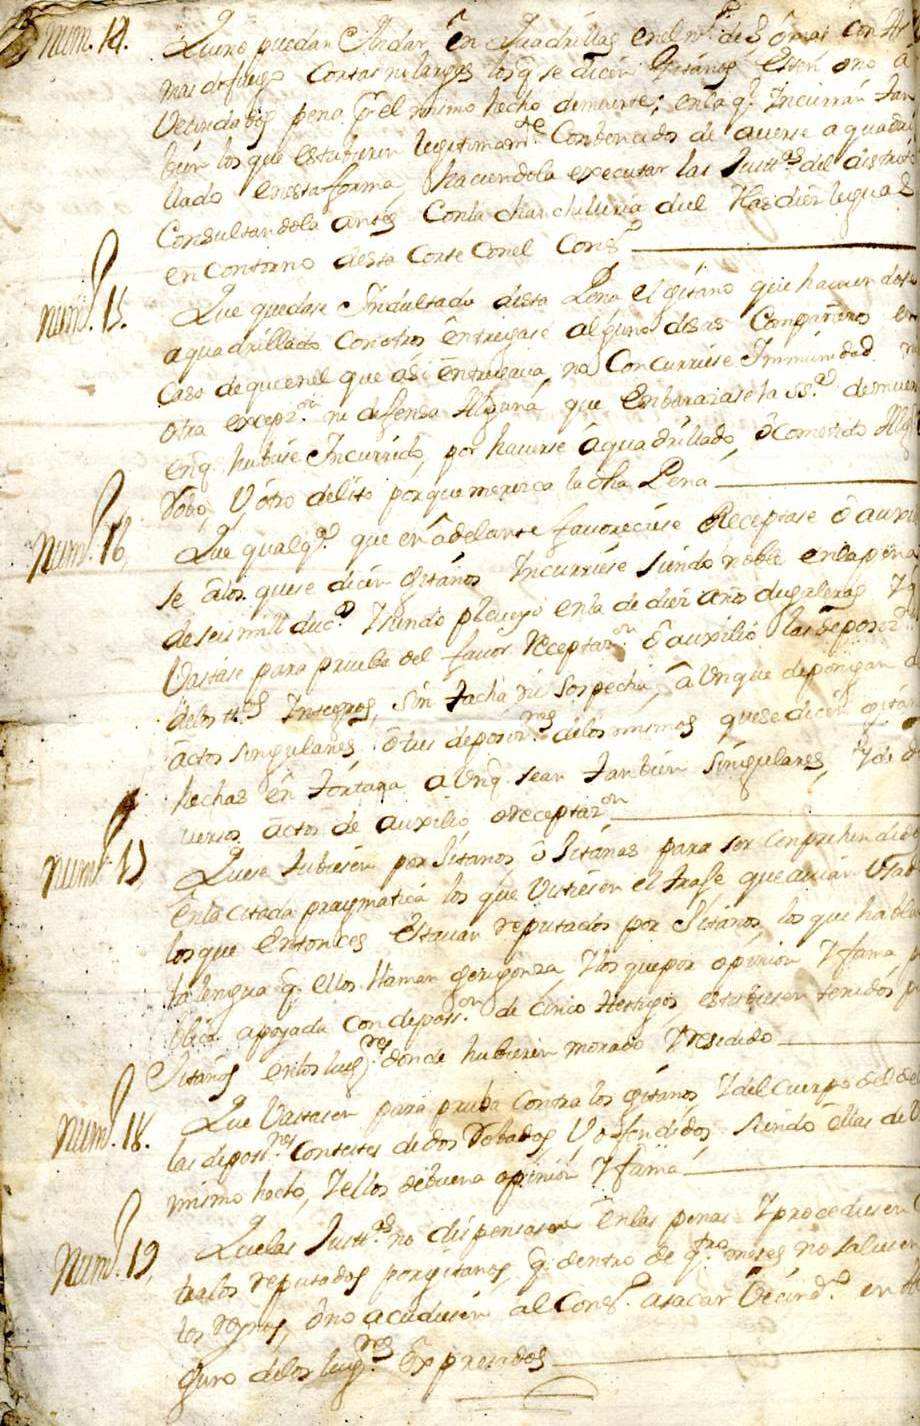 Num.º 14. Que no puedan Andar en Quadrillas en el n.º de 3 ô mas con Ar
mas de fuego Cortas ni largas los q.e se dicen Gitanos Esten ô no a
Vecindados pena p.r el mismo hecho de muerte; en la q.e Incurran Tan
bien los que estubieren legitimam.te Condenados de averse aquadri
llado en esta forma, haciendola executar las Just.as del distrito
Consultandola antes Con la Chanchilleria del Has diez leguas
en Contorno desta Corte Con el Cons.º
Num.º 15. Que quedase Indultado desta Pena el gitano que haviendose
aquadrillado Con otros entregase alguno de sus Compañeros en
Caso de que en el que asi entregava, no Concurriese Immunidad ni
otra excepz.on ni defensa Alguna que Embarazase la ss.a de muer
en q.e hubiese Incurrido, por haverse aquadrillado, ô Cometido Alg
Robo, U otro delito porque merezca la dha Pena
Num.º 16. Que qualq.a que en adelante favoreciese Receptase ô auxi
se â los que se dicen gitanos Incurriese siendo noble en la pena
de seis mill duc.s Y siendo plebeyo en la de diez años de galeras Y q
Vastase para prueba del favor Receptaz.on ô auxilio las deposiz.
de dos tt.os Integros, sin tacha, ni sospecha, aunque depongan d
actos singulares ô tres deposiz.nes de los mismos que se dicen gitan
hechas en Tortura aunq.e sean tambien Singulares, Y de di
versos actos de auxilio o receptaz.on
Num.º 17. Que se tubiesen por Gitanos ô Gitanas para ser Comprehendid
en la citada pragmatica los que Vistiesen el traje que avian Usad
los que entonces Estavan reputados por Gitanos, los que hablas
la lengua q.e ellos llaman gerigonza Y los que por opinion Y fama p
blica apoyada con deposiz.on de Cinco testigos, estubiesen tenidos p
Gitanos en los lug.res donde hubieren morado Y residido
Num.º 18. Que Vastasen para prueba Contra los gitanos Y del Cuerpo del de
las deposiz.nes Contestes de dos Robados, U ofendidos, siendo ellas de U
mismo hecho, Y ellos de buena opinion Y fama
Num.º 19. Que las Just.as no dispensasen en las penas Y procediesen C
tra los reputados por gitanos, q.e dentro de q.tro meses no saliesen
los Reynos, ô no acudiesen al Cons.º a sacar Vecind.d en Al
guno de los lug.res Expresados